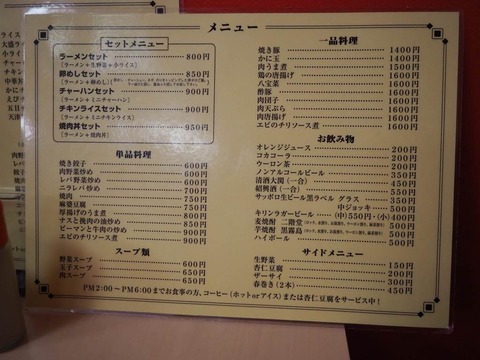 メニュー
セットメニュー
ラーメンセット 800円
[ラーメン+生野菜+小ライス]
卵めしセット 850円
[ラーメン+卵めし]
チャーハンセット 900円
[ラーメン+ミニチャーハン]
チキンライスセット 900円
[ラーメン+ミニチキンライス]
焼肉丼セット 950円
[ラーメン+焼肉丼]
単品料理
焼き餃子 600円
肉野菜炒め 600円
レバ野菜炒め 600円
ニラレバ炒め 600円
焼肉 750円
麻婆豆腐 700円
厚揚げのうま煮 800円
ナスと挽肉の油炒め 800円
ピーマンと牛肉の炒め 900円
エビのチリソース煮 900円
スープ類
野菜スープ 600円
玉子スープ 650円
肉スープ 650円
一品料理
焼き豚 1400円
かに玉 1400円
肉うま煮 1500円
鶏の唐揚げ 1600円
八宝菜 1600円
酢豚 1600円
肉団子 1600円
肉天ぷら 1600円
肉唐揚げ 1600円
エビのチリソース煮 1600円
お飲み物
オレンジジュース 200円
コカコーラ 200円
ウーロン茶 200円
ノンアルコールビール 350円
清酒大関(一合) 350円
紹興酒(一合) 450円
サッポロ生ビール黒ラベル グラス 350円
中ジョッキ 500円
キリンラガービール (中)550円・(小)400円
麦焼酎 二階堂 350円
芋焼酎 黒霧島 350円
ハイボール 400円
サイドメニュー
生野菜 150円
杏仁豆腐 200円
ザーサイ 300円
春巻き(2本) 450円
PM2:00〜PM6:00までお食事の方、コーヒー(ホットorアイス)または杏仁豆腐をサービス中!